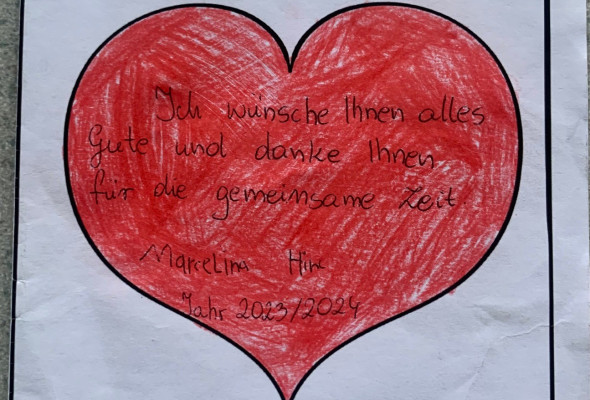 Ich wünsche Ihnen alles
Gute und danke Ihnen
für die gemeinsame Zeit.
Marcelina
Jahr 2023/2024